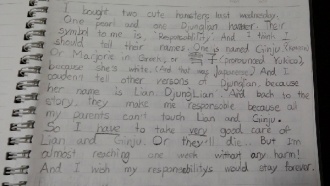 I bought two cute hamsters last wednesday.
One pearl and one Djunglian hamster. Their
symbol to me is, "Responsibility". And I think I
should tell their names. One is named Ginju
Or Marjorie in Greek, or 雪子 (pronounced Yukico),
because she's white. (And that was Japanese) And I
couldn't tell other versons of Djunglian, because
her name is Lian. DjungLian. And back to the
story, they make me responsable because all
my parents can't touch Lian and Ginju.
So I have to take very good care of
Lian and Ginju. Or they'll die... But I'm
almost reaching one week without any harm!
And I wish my responsibilitys would stay forever.